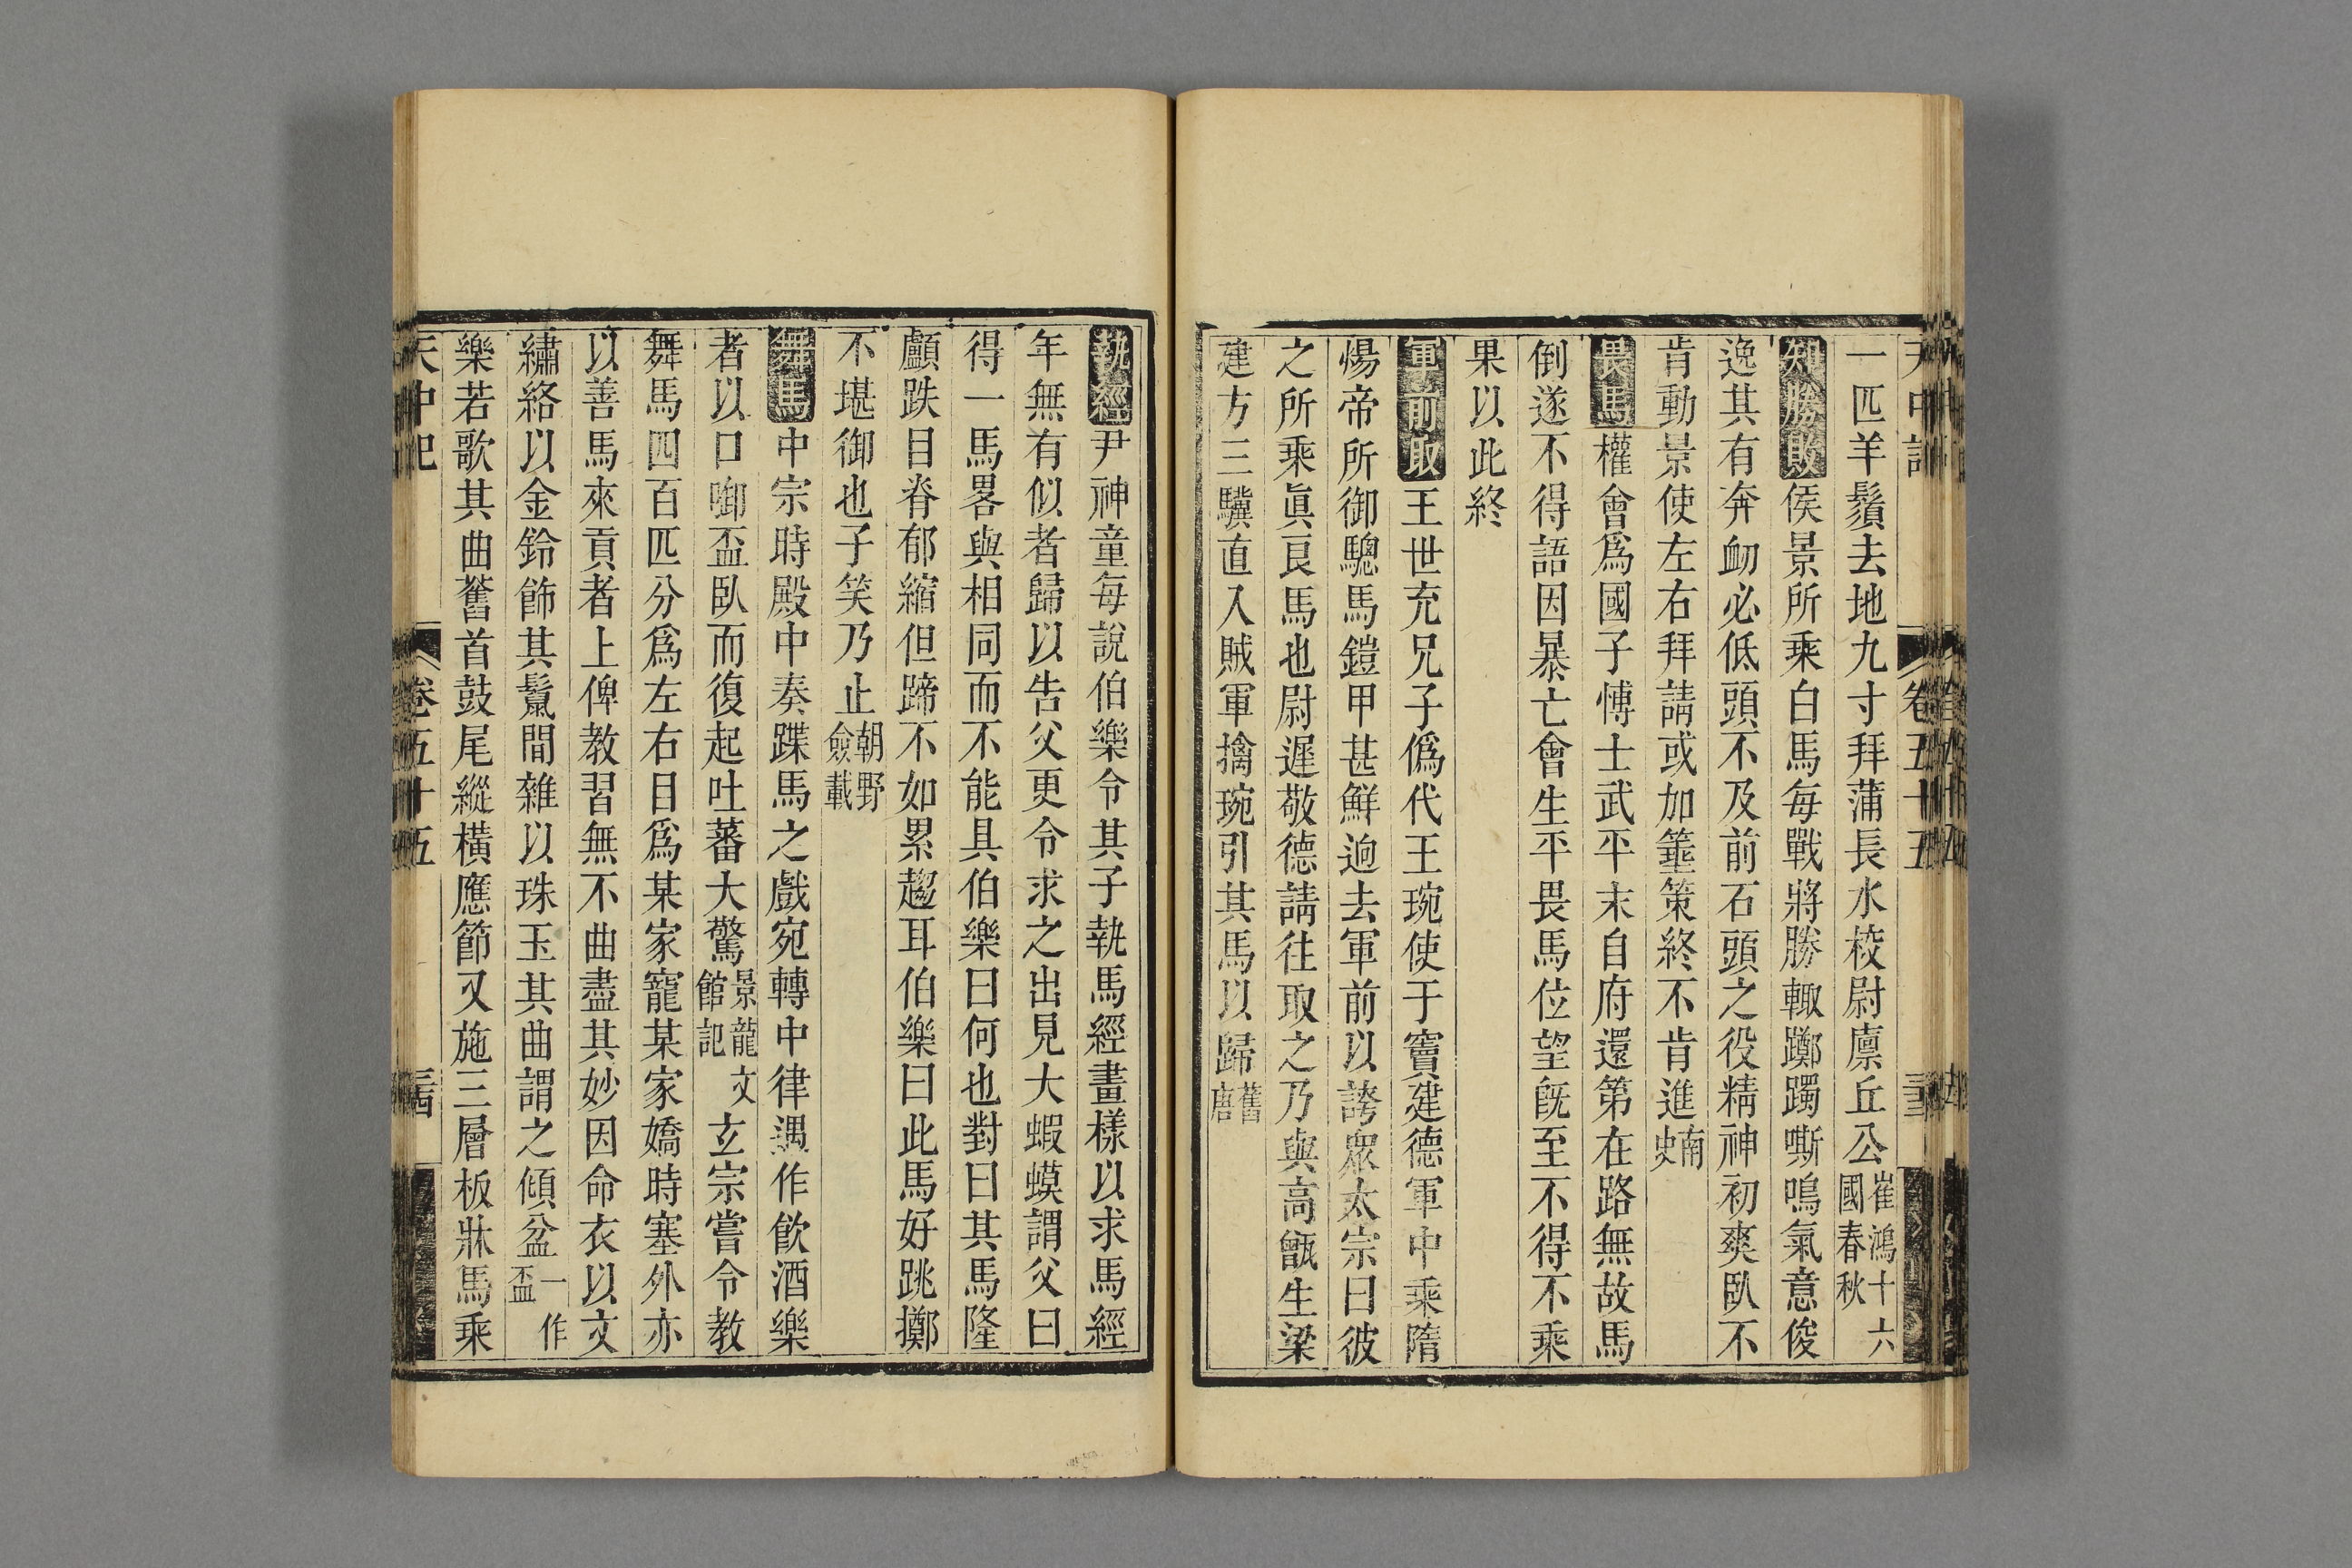 天中記
卷五十五
一匹羊鬚去地九寸拜蒲長水校尉廪丘公崔鴻十六國春秋
知勝敗侯景所乘白馬每戰將勝輙躑躅嘶鳴氣意俊
逸其有奔衂必低頭不及前石頭之役精神初爽臥不
肯動景使左右拜請或加箠策終不肯進南史
畏馬權會爲國子博士武平末自府還第在路無故馬
倒遂不得語因暴亡會生平畏馬位望旣至不得不乘
果以此終
軍前取王世充兄子僞代王琬使于竇建德軍中乘隋
煬帝所御驄馬鎧甲甚鮮逈去軍前以誇衆太宗曰彼
之所乘眞良馬也尉遲敬德請往取之乃與高甑生梁
建方三驥直入賊軍擒琬引其馬以歸舊唐
執經尹神童每說伯樂令其子執馬經畫樣以求馬經
年無有似者歸以告父更令求之出見大蝦蟆謂父曰
得一馬畧與相同而不能具伯樂曰何也對曰其馬隆
顱跌目脊郁縮但蹄不如累趨耳伯樂曰此馬好跳擲
不堪御也子笑乃止朝野僉載
舞馬中宗時殿中奏蹀馬之戲宛轉中律遇作飮酒樂
者以口啣盃臥而復起吐蕃大驚景龍文館記玄宗嘗令教
舞馬四百匹分爲左右目爲某家寵某家嬌時塞外亦
以善馬來貢者上俾教習無不曲盡其妙因命衣以文
繡絡以金鈴飾其鬣間雜以珠玉其曲謂之傾盆一作盃
樂若歌其曲舊首鼓尾縱橫應節又施三層板牀馬乘
天中記
卷五十五
三四